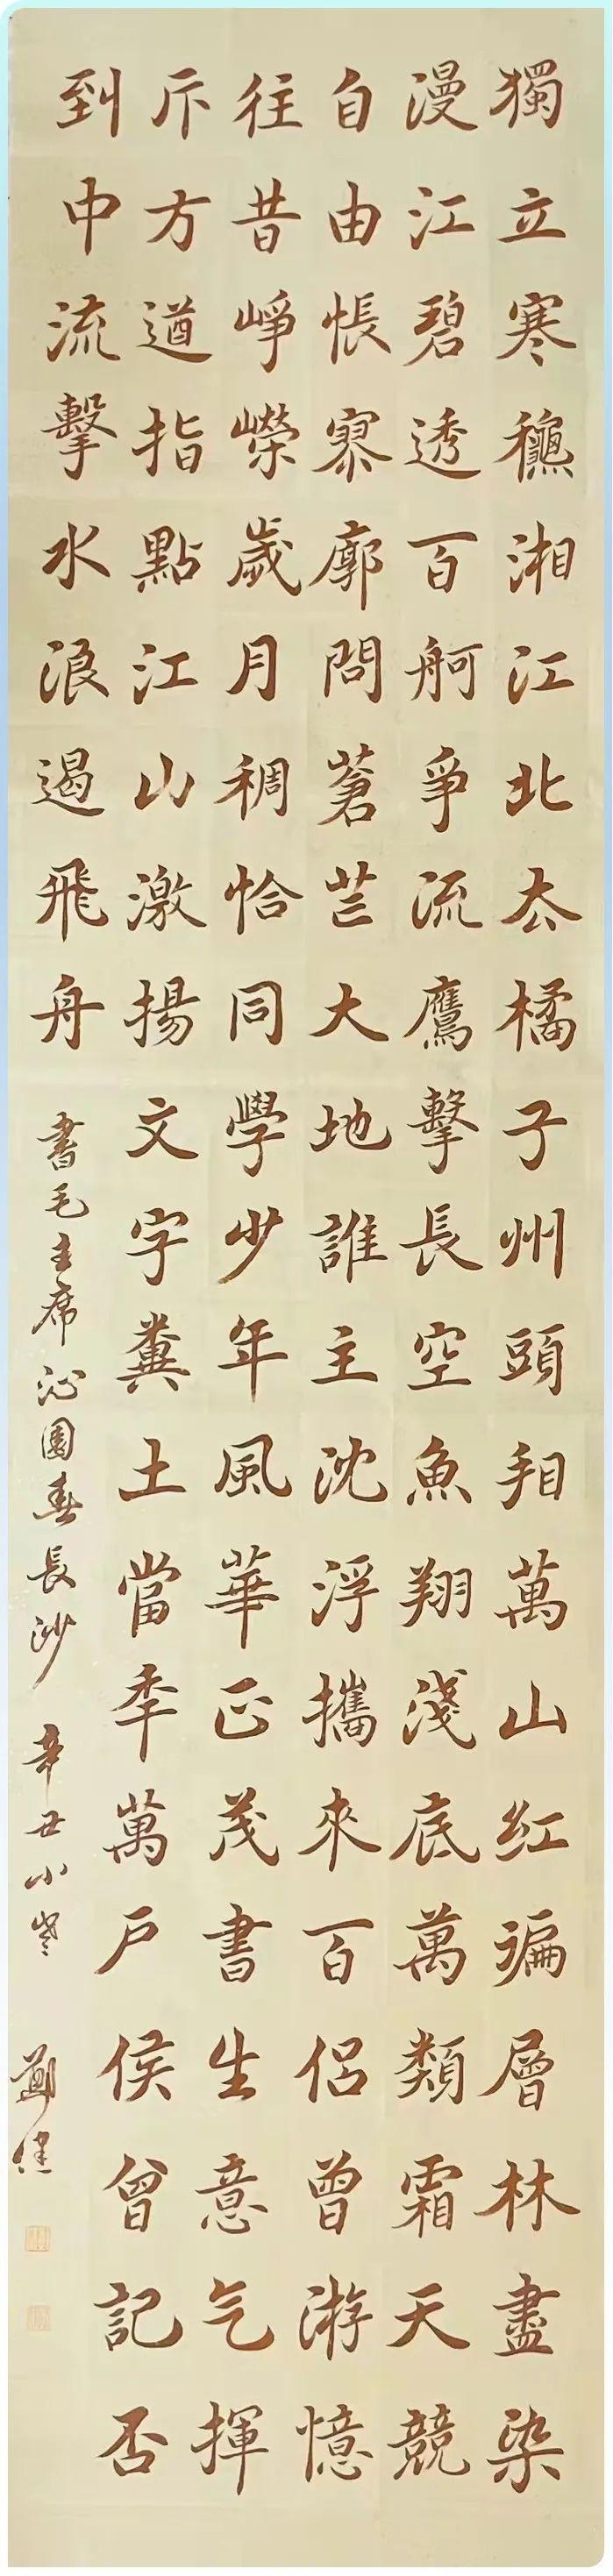 獨立寒龝湘江北厺橘子州頭看萬山红遍層林盡染
漫江碧透百舸爭流鷹擊長空魚翔淺底萬類霜天競
自由悵寥廓問蒼茫大地誰主沈浮攜來百侣曾游憶
往昔崢嶸歲月稠恰同學少年風華正茂書生意气揮
斥方遒指點江山激揚文字糞土當秊萬户侯曾記否
到中流擊水浪遏飛舟 書毛主席沁園春長沙 辛丑小寒 鄭健